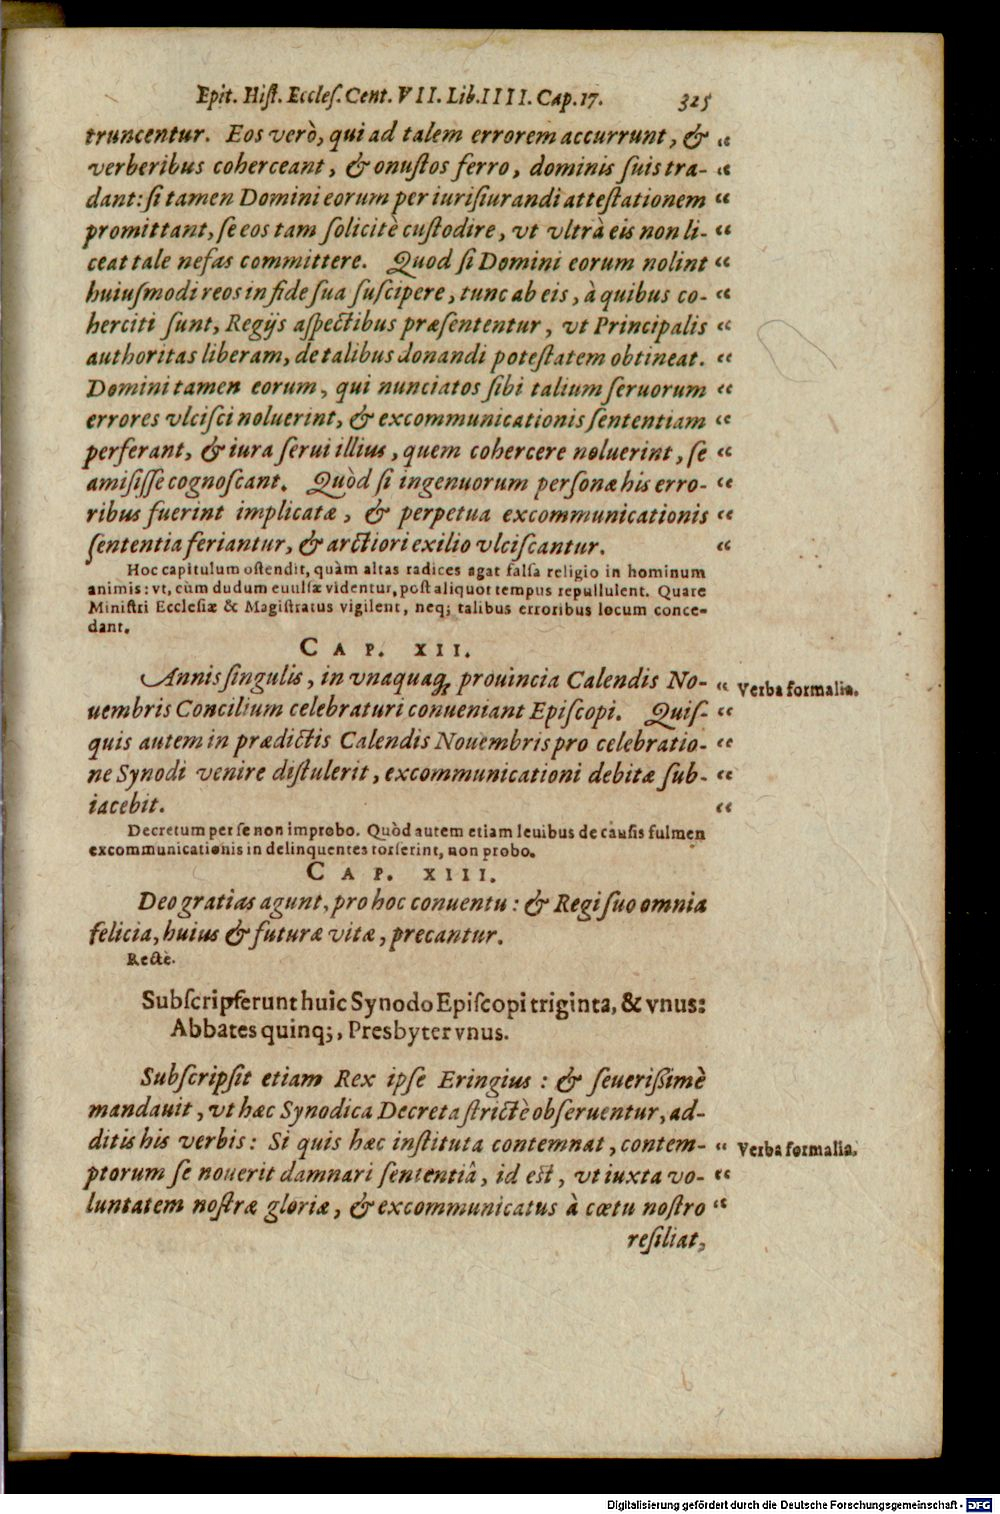 Epit. Hiſt. Eccleſ. Cent. VII. Lib. IIII. Cap. 17. 325
truncentur. Eos verò, qui ad talem errorem accurrunt, & “
verberibus coherceant, & onuſtos ferro, dominis ſuis tra- “
dant: ſi tamen Domini eorum per iuriſiurandi atteſtationem “
promittant, ſe eos tam ſolicitè cuſtodire, vt vltrà eis non li- “
ceat tale nefas committere. Quod ſi Domini eorum nolint “
huiuſmodi reos in fide ſua ſuſcipere, tunc ab eis, à quibus co- “
herciti ſunt, Regijs aſpectibus præſententur, vt Principalis “
authoritas liberam, de talibus donandi poteſtatem obtineat. “
Domini tamen eorum, qui nunciatos ſibi talium ſeruorum “
errores vlciſci noluerint, & excommunicationis ſententiam “
perferant, & iura ſerui illius, quem cohercere noluerint, ſe “
amiſiſſe cognoſcant. Quòd ſi ingenuorum perſonæ his erro- “
ribus fuerint implicatæ, & perpetua excommunicationis “
ſententia feriantur, & arctiori exilio vlciſcantur. “
Hoc capitulum oſtendit, quàm altas radices agat falſa religio in hominum
animis: vt, cùm dudum euulſæ videntur, poſt aliquot tempus repullulent. Quare
Miniſtri Eccleſiæ & Magiſtratus vigilent, neq; talibus erroribus locum conce-
dant.
CAP. XII.
Annis ſingulis, in vnaquaq; prouincia Calendis No- “ Verba formalia.
uembris Concilium celebraturi conueniant Epiſcopi. Quiſ- “
quis autem in prædictis Calendis Nouembris pro celebratio- “
ne Synodi venire diſtulerit, excommunicationi debitæ ſub- “
iacebit. “
Decretum per ſe non improbo. Quòd autem etiam leuibus de cauſis fulmen
excommunicationis in delinquentes torſerint, non probo.
CAP. XIII.
Deo gratias agunt, pro hoc conuentu: & Regi ſuo omnia
felicia, huius & futuræ vitæ, precantur.
Rectè.
Subſcripſerunt huic Synodo Epiſcopi triginta, & vnus:
Abbates quinq;, Presbyter vnus.
Subſcripſit etiam Rex ipſe Eringius: & ſeuerißimè
mandauit, vt hæc Synodica Decreta ſtrictè obſeruentur, ad-
ditis his verbis: Si quis hæc inſtituta contemnat, contem- “ Verba formalia.
ptorum ſe nouerit damnari ſententiâ, id eſt, vt iuxta vo- “
luntatem noſtræ gloriæ, & excommunicatus à cœtu noſtro “
reſiliat,
Digitalisierung gefördert durch die Deutsche Forschungsgemeinschaft - DFG